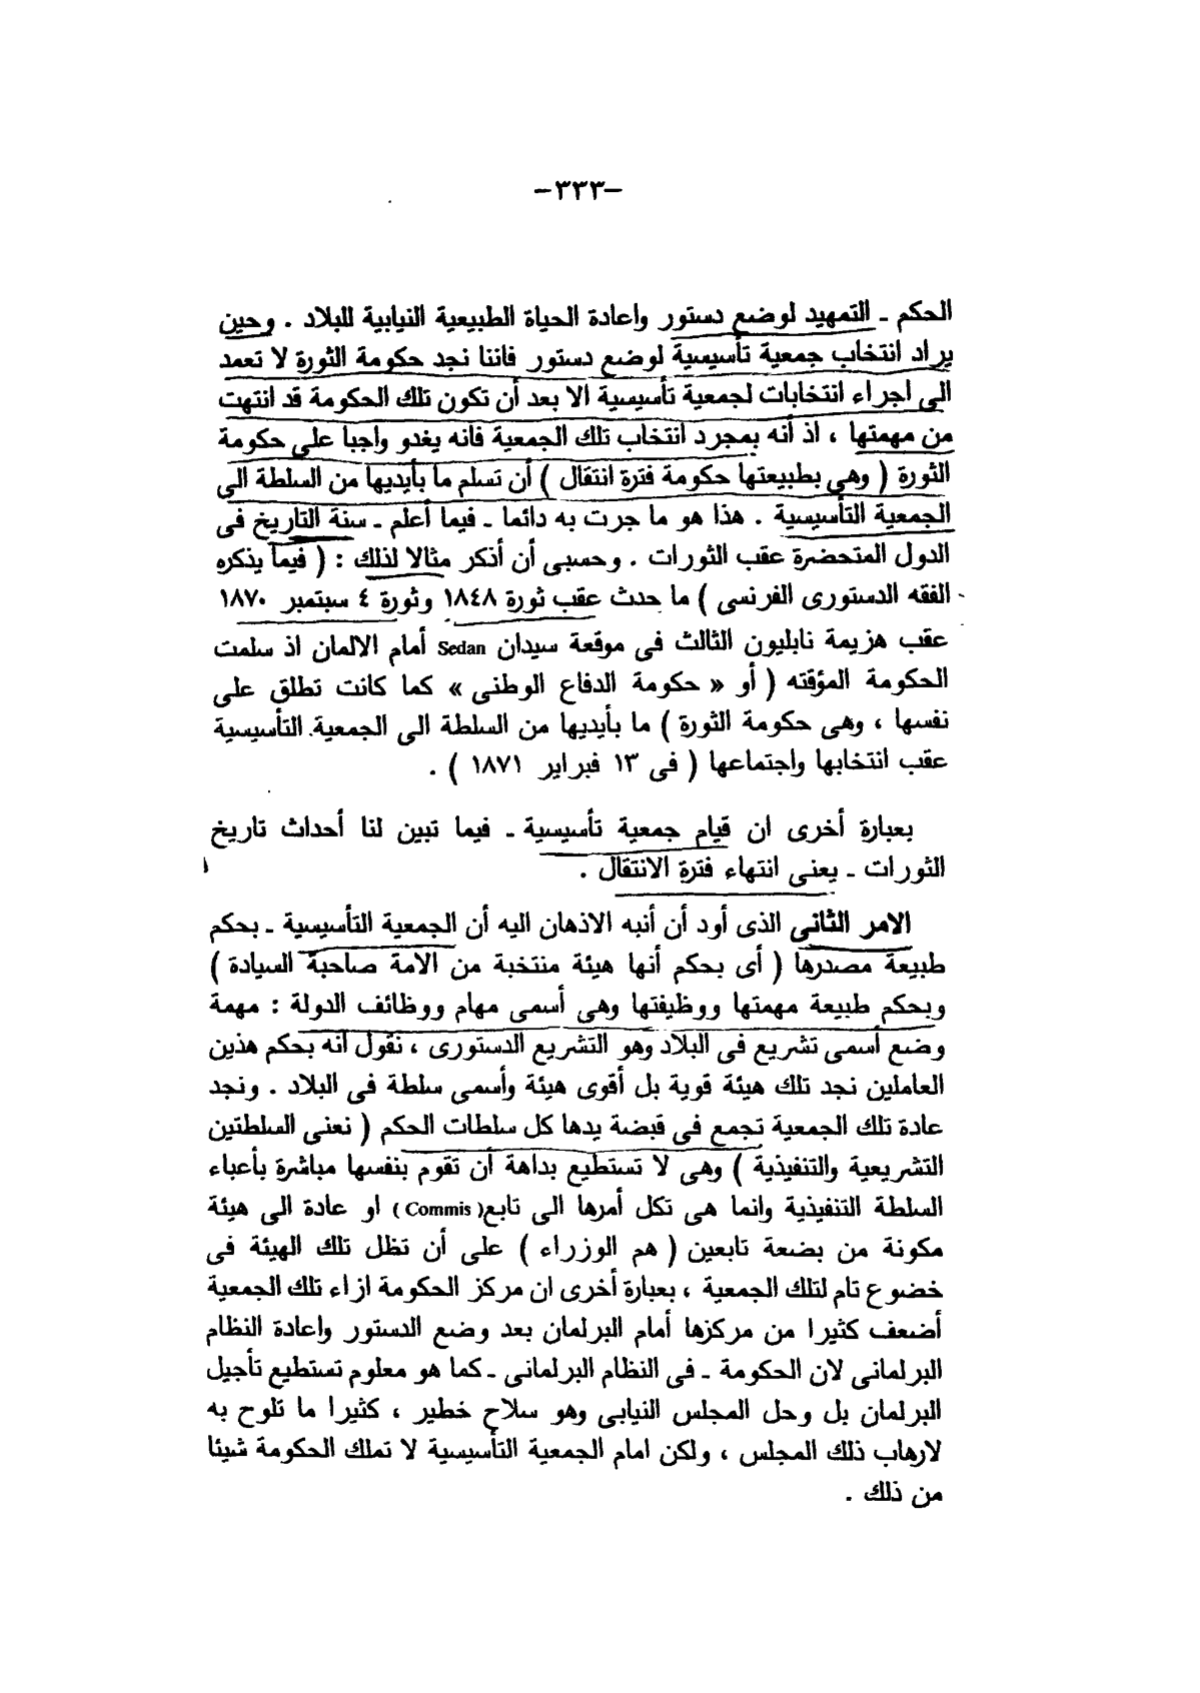 –٣٣٣–
الحكم ـ التمهيد لوضع دستور واعادة الحياة الطبيعية النيابية للبلاد . وحين
يراد انتخاب جمعية تأسيسية لوضع دستور فاننا نجد حكومة الثورة لا تعمد
الى اجراء انتخابات لجمعية تأسيسية الا بعد أن تكون تلك الحكومة قد انتهت
من مهمتها ، اذ أنه بمجرد انتخاب تلك الجمعية فانه يغدو واجبا على حكومة
الثورة ( وهى بطبيعتها حكومة فترة انتقال ) أن تسلم ما بأيديها من السلطة الى
الجمعية التأسيسية . هذا هو ما جرت به دائما ـ فيما أعلم ـ سنة التاريخ فى
الدول المتحضرة عقب الثورات . وحسبى أن أذكر مثالا لذلك : ( فيما يذكره
الفقه الدستورى الفرنسى ) ما حدث عقب ثورة ١٨٤٨ وثورة ٤ سبتمبر ١٨٧٠
عقب هزيمة نابليون الثالث فى موقعة سيدان Sedan أمام الالمان اذ سلمت
الحكومة المؤقته ( أو « حكومة الدفاع الوطنى » كما كانت تطلق على
نفسها ، وهى حكومة الثورة ) ما بأيديها من السلطة الى الجمعية التأسيسية
عقب انتخابها واجتماعها ( فى ١٣ فبراير ١٨٧١ ) .
بعبارة أخرى ان قيام جمعية تأسيسية ـ فيما تبين لنا أحداث تاريخ
الثورات ـ يعنى انتهاء فترة الانتقال .
الامر الثانى الذى أود أن أنبه الاذهان اليه أن الجمعية التأسيسية ـ بحكم
طبيعة مصدرها ( أى بحكم أنها هيئة منتخبة من الامة صاحبة السيادة )
وبحكم طبيعة مهمتها ووظيفتها وهى أسمى مهام ووظائف الدولة : مهمة
وضع أسمى تشريع فى البلاد وهو التشريع الدستورى ، نقول أنه بحكم هذين
العاملين نجد تلك هيئة قوية بل أقوى هيئة وأسمى سلطة فى البلاد . ونجد
عادة تلك الجمعية تجمع فى قبضة يدها كل سلطات الحكم ( نعنى السلطتين
التشريعية والتنفيذية ) وهى لا تستطيع بداهة أن تقوم بنفسها مباشرة بأعباء
السلطة التنفيذية وانما هى تكل أمرها الى تابع( Commis ) او عادة الى هيئة
مكونة من بضعة تابعين ( هم الوزراء ) على أن تظل تلك الهيئة فى
خضوع تام لتلك الجمعية ، بعبارة أخرى ان مركز الحكومة ازاء تلك الجمعية
أضعف كثيرا من مركزها أمام البرلمان بعد وضع الدستور واعادة النظام
البرلمانى لان الحكومة ـ فى النظام البرلمانى ـ كما هو معلوم تستطيع تأجيل
البرلمان بل وحل المجلس النيابى وهو سلاح خطير ، كثيرا ما تلوح به
لارهاب ذلك المجلس ، ولكن امام الجمعية التأسيسية لا تملك الحكومة شيئا
من ذلك .